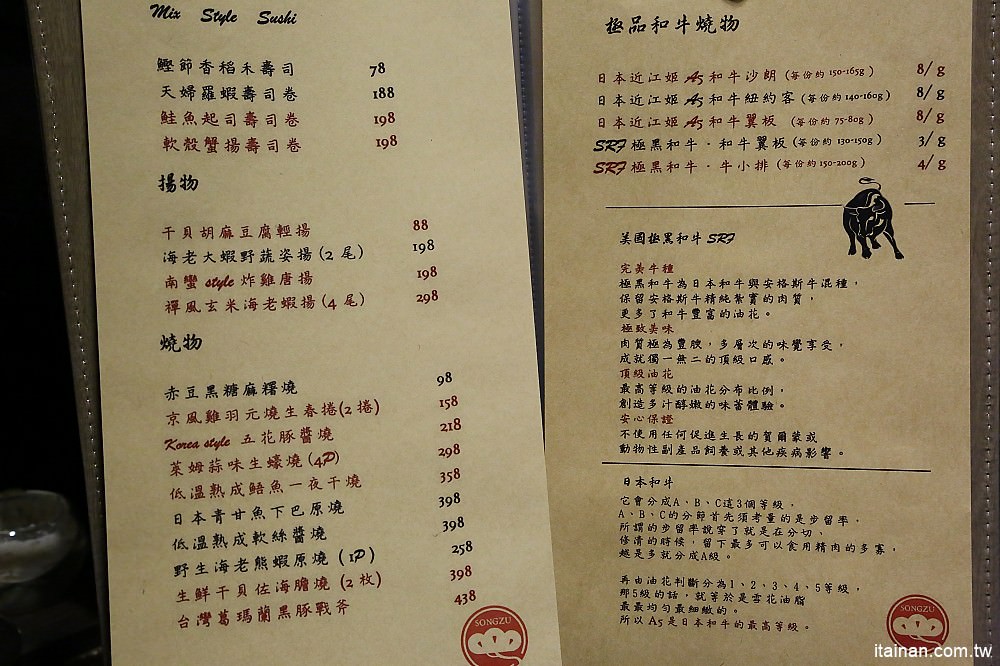 Mix Style Sushi
鰹節香稻禾壽司 78
天婦羅蝦壽司卷 188
鮭魚起司壽司卷 198
軟殼蟹揚壽司卷 198
揚物
干貝胡麻豆腐輕揚 88
海老大蝦野蔬姿揚(2 尾) 198
南蠻 style 炸雞唐揚 198
禪風玄米海老蝦揚(4 尾) 298
燒物
赤豆黑糖麻糬燒 98
京風雞羽元燒生春捲(2 捲) 158
Korea style 五花豚醬燒 218
萊姆蒜味生蠔燒(4P) 298
低溫熟成鯃魚一夜干燒 358
日本青甘魚下巴原燒 398
低溫熟成軟絲醬燒 398
野生海老熊蝦原燒 (1P) 258
生鮮干貝佐海膽燒 (2 枚) 398
台灣葛瑪蘭黑豚戰斧 438
SONGZU
極品和牛燒物
日本近江姬 A5 和牛沙朗 (每份約 150-165g ) 8/ g
日本近江姬 A5 和牛紐約客 (每份約 140-160g ) 8/ g
日本近江姬 A5 和牛翼板 (每份約 75-80g ) 8/ g
SRF 極黑和牛．和牛翼板 (每份約 130-150g ) 3/ g
SRF 極黑和牛．牛小排 (每份約 150-200g ) 4/ g
美國極黑和牛 SRF
完美牛種
極黑和牛為日本和牛與安格斯牛混種，
保留安格斯牛精純紮實的肉質，
更多了和牛豐富的油花。
極致美味
肉質極為豐腴，多層次的味覺享受，
成就獨一無二的頂級口感。
頂級油花
最高等級的油花分布比例，
創造多汁醇嫩的味蕾體驗。
安心保證
不使用任何促進生長的賀爾蒙或
動物性副產品飼養或其他疾病影響。
日本和牛
它會分成A、B、C這3個等級，
A、B、C的分節首先須考量的是步留率，
所謂的步留率說穿了就是在分切、
修清的時候，留下最多可以食用精肉的多寡，
越是多就分成A級。
再由油花判斷分為1、2、3、4、5等級，
那5級的話，就等於是雪花油脂
最最均勻最細緻的。
所以 A5 是日本和牛的最高等級。
SONGZU
itainan.com.tw